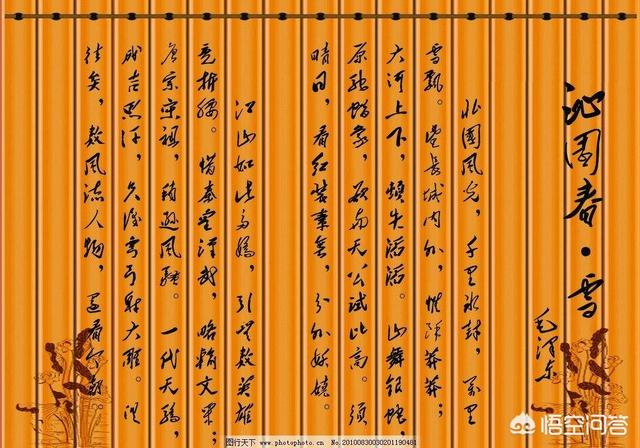 沁园春·雪
毛泽东
北国风光，千里冰封，万里
雪飘。望长城内外，惟馀莽莽；
大河上下，顿失滔滔。山舞银蛇，
原驰蜡象，欲与天公试比高。须
晴日，看红装素裹，分外妖娆。
江山如此多娇，引无数英雄
竞折腰。惜秦皇汉武，略输文采；
唐宗宋祖，稍逊风骚。一代天骄，
成吉思汗，只识弯弓射大雕。俱
往矣，数风流人物，还看今朝。
图行天下 www.photophoto.cn No.20100830030201190481
悟空问答